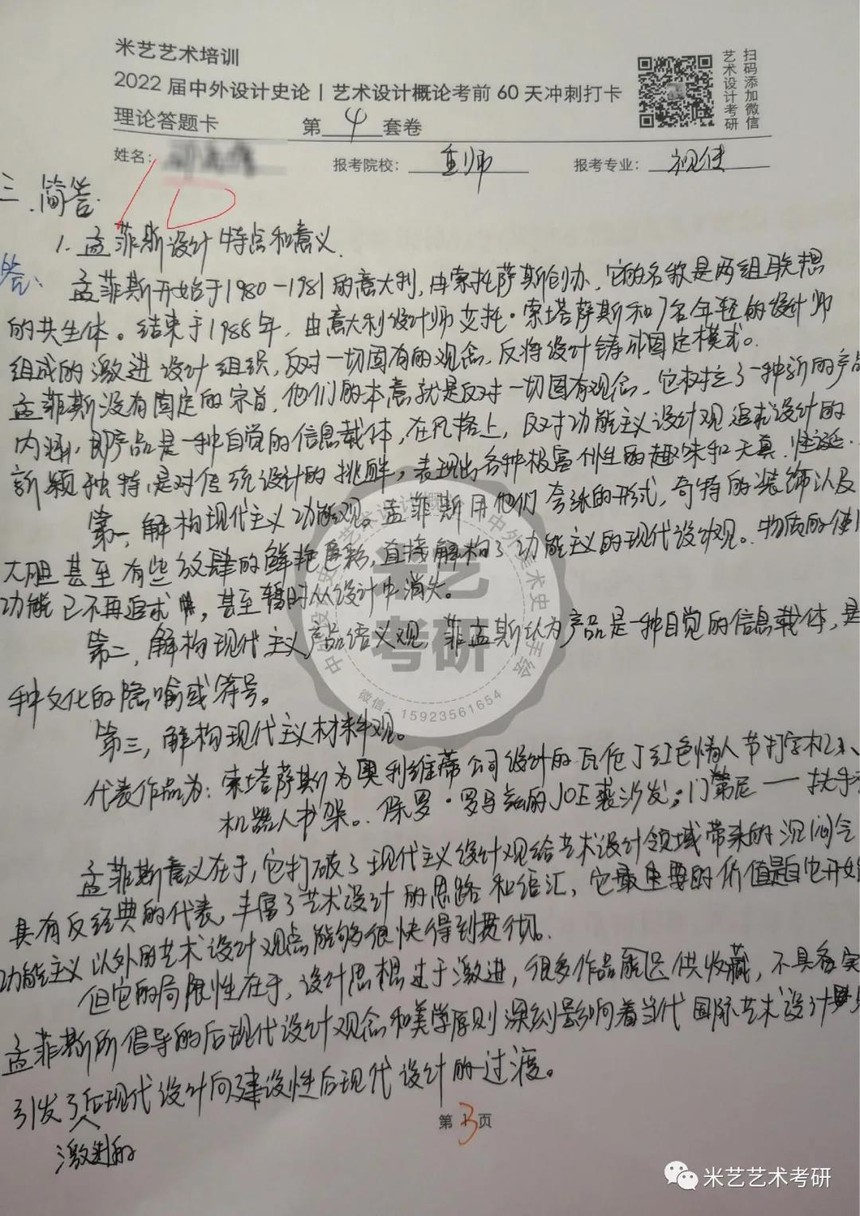 米艺艺术培训
2022 届中外设计史论 | 艺术设计概论考前 60 天冲刺打卡
理论答题卡 第 4 套卷
扫码添加微信
艺术设计考研
姓名: 报考院校: 重师 报考专业: 视传
10
三、简答.
1. 孟菲斯设计特点和意义.
答: 孟菲斯开始于1980-1981的意大利,由索托萨斯创办,它的名称是两组联想
的共生体。结束于1988年,由意大利设计师艾托·索塔萨斯和7名年轻的设计师
组成的激进设计组织,反对一切固有的观念,反将设计铸成固定模式。
孟菲斯没有固定的宗旨,他们的本意就是反对一切固有观念,它树立了一种新的产品
内涵,即产品是一种自觉的信息载体,在风格上,反对功能主义设计观追求设计的
新颖独特,是对传统设计的挑衅,表现出各种极富个性的趣味和天真、怪诞..
第一,解构现代主义功能观。孟菲斯用他们夸张的形式,奇特的装饰以及
大胆甚至有些放肆的鲜艳色彩,直接解构了功能主义的现代设计观。物质的使用
功能已不再追求,甚至暂时从设计中消失。
第二,解构现代主义产品语义观,菲孟斯认为产品是一种自觉的信息载体,是
种文化的隐喻或符号。
第三,解构现代主义材料观。
代表作品为:索塔萨斯为奥利维蒂公司设计的瓦伦丁红色情人节打字机
机器人书架。保罗·罗马兹的JOE裘沙发;门第尼——扶手
孟菲斯意义在于,它打破了现代主义设计观给艺术设计领域带来的沉闷气
具有反经典的代表,丰富了艺术设计的思路和语汇,它最重要的价值是自它开始
功能主义以外的艺术设计观点能够很快得到贯彻。
但它的局限性在于,设计思想过于激进,很多作品能供收藏,不具备实
孟菲斯所倡导的后现代设计观念和美学原则深刻影响着当代国际艺术设计
引发了激进的后现代设计向建设性后现代设计的过渡。
第 3 页
中外美术史手绘
米艺
考研
微信:15923561654
米艺艺术考研